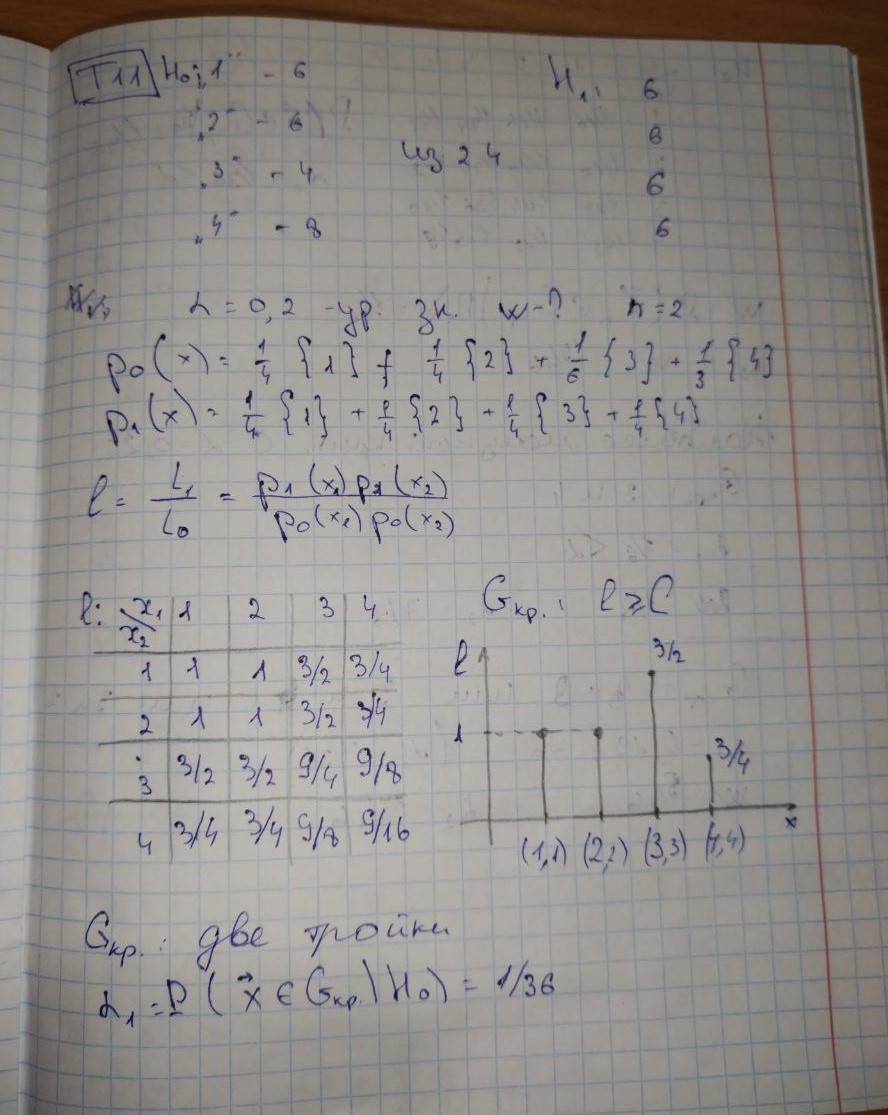 T11 H₀: „1" - 6 H₁: 6
„2" - 6 6
из 24
„3" - 4 6
„4" - 8 6
α = 0,2 - ур. зн. w - ? n = 2
p₀(x) = 1/4 {1} + 1/4 {2} + 1/6 {3} + 1/3 {4}
p₁(x) = 1/4 {1} + 1/4 {2} + 1/4 {3} + 1/4 {4}
l = L₁/L₀ = p₁(x₁) p₁(x₂) / p₀(x₁) p₀(x₂)
l: x₁ / x₂ 1 2 3 4
Gкр.: l ≥ C
1 1 1 3/2 3/4
2 1 1 3/2 3/4
3 3/2 3/2 9/4 9/8
4 3/4 3/4 9/8 9/16
l 3/2
1 3/4
x
(1,1) (2,2) (3,3) (4,4)
Gкр.: две тройки
α₁ = P (x⃗ ∈ Gкр. \ H₀) = 1/36